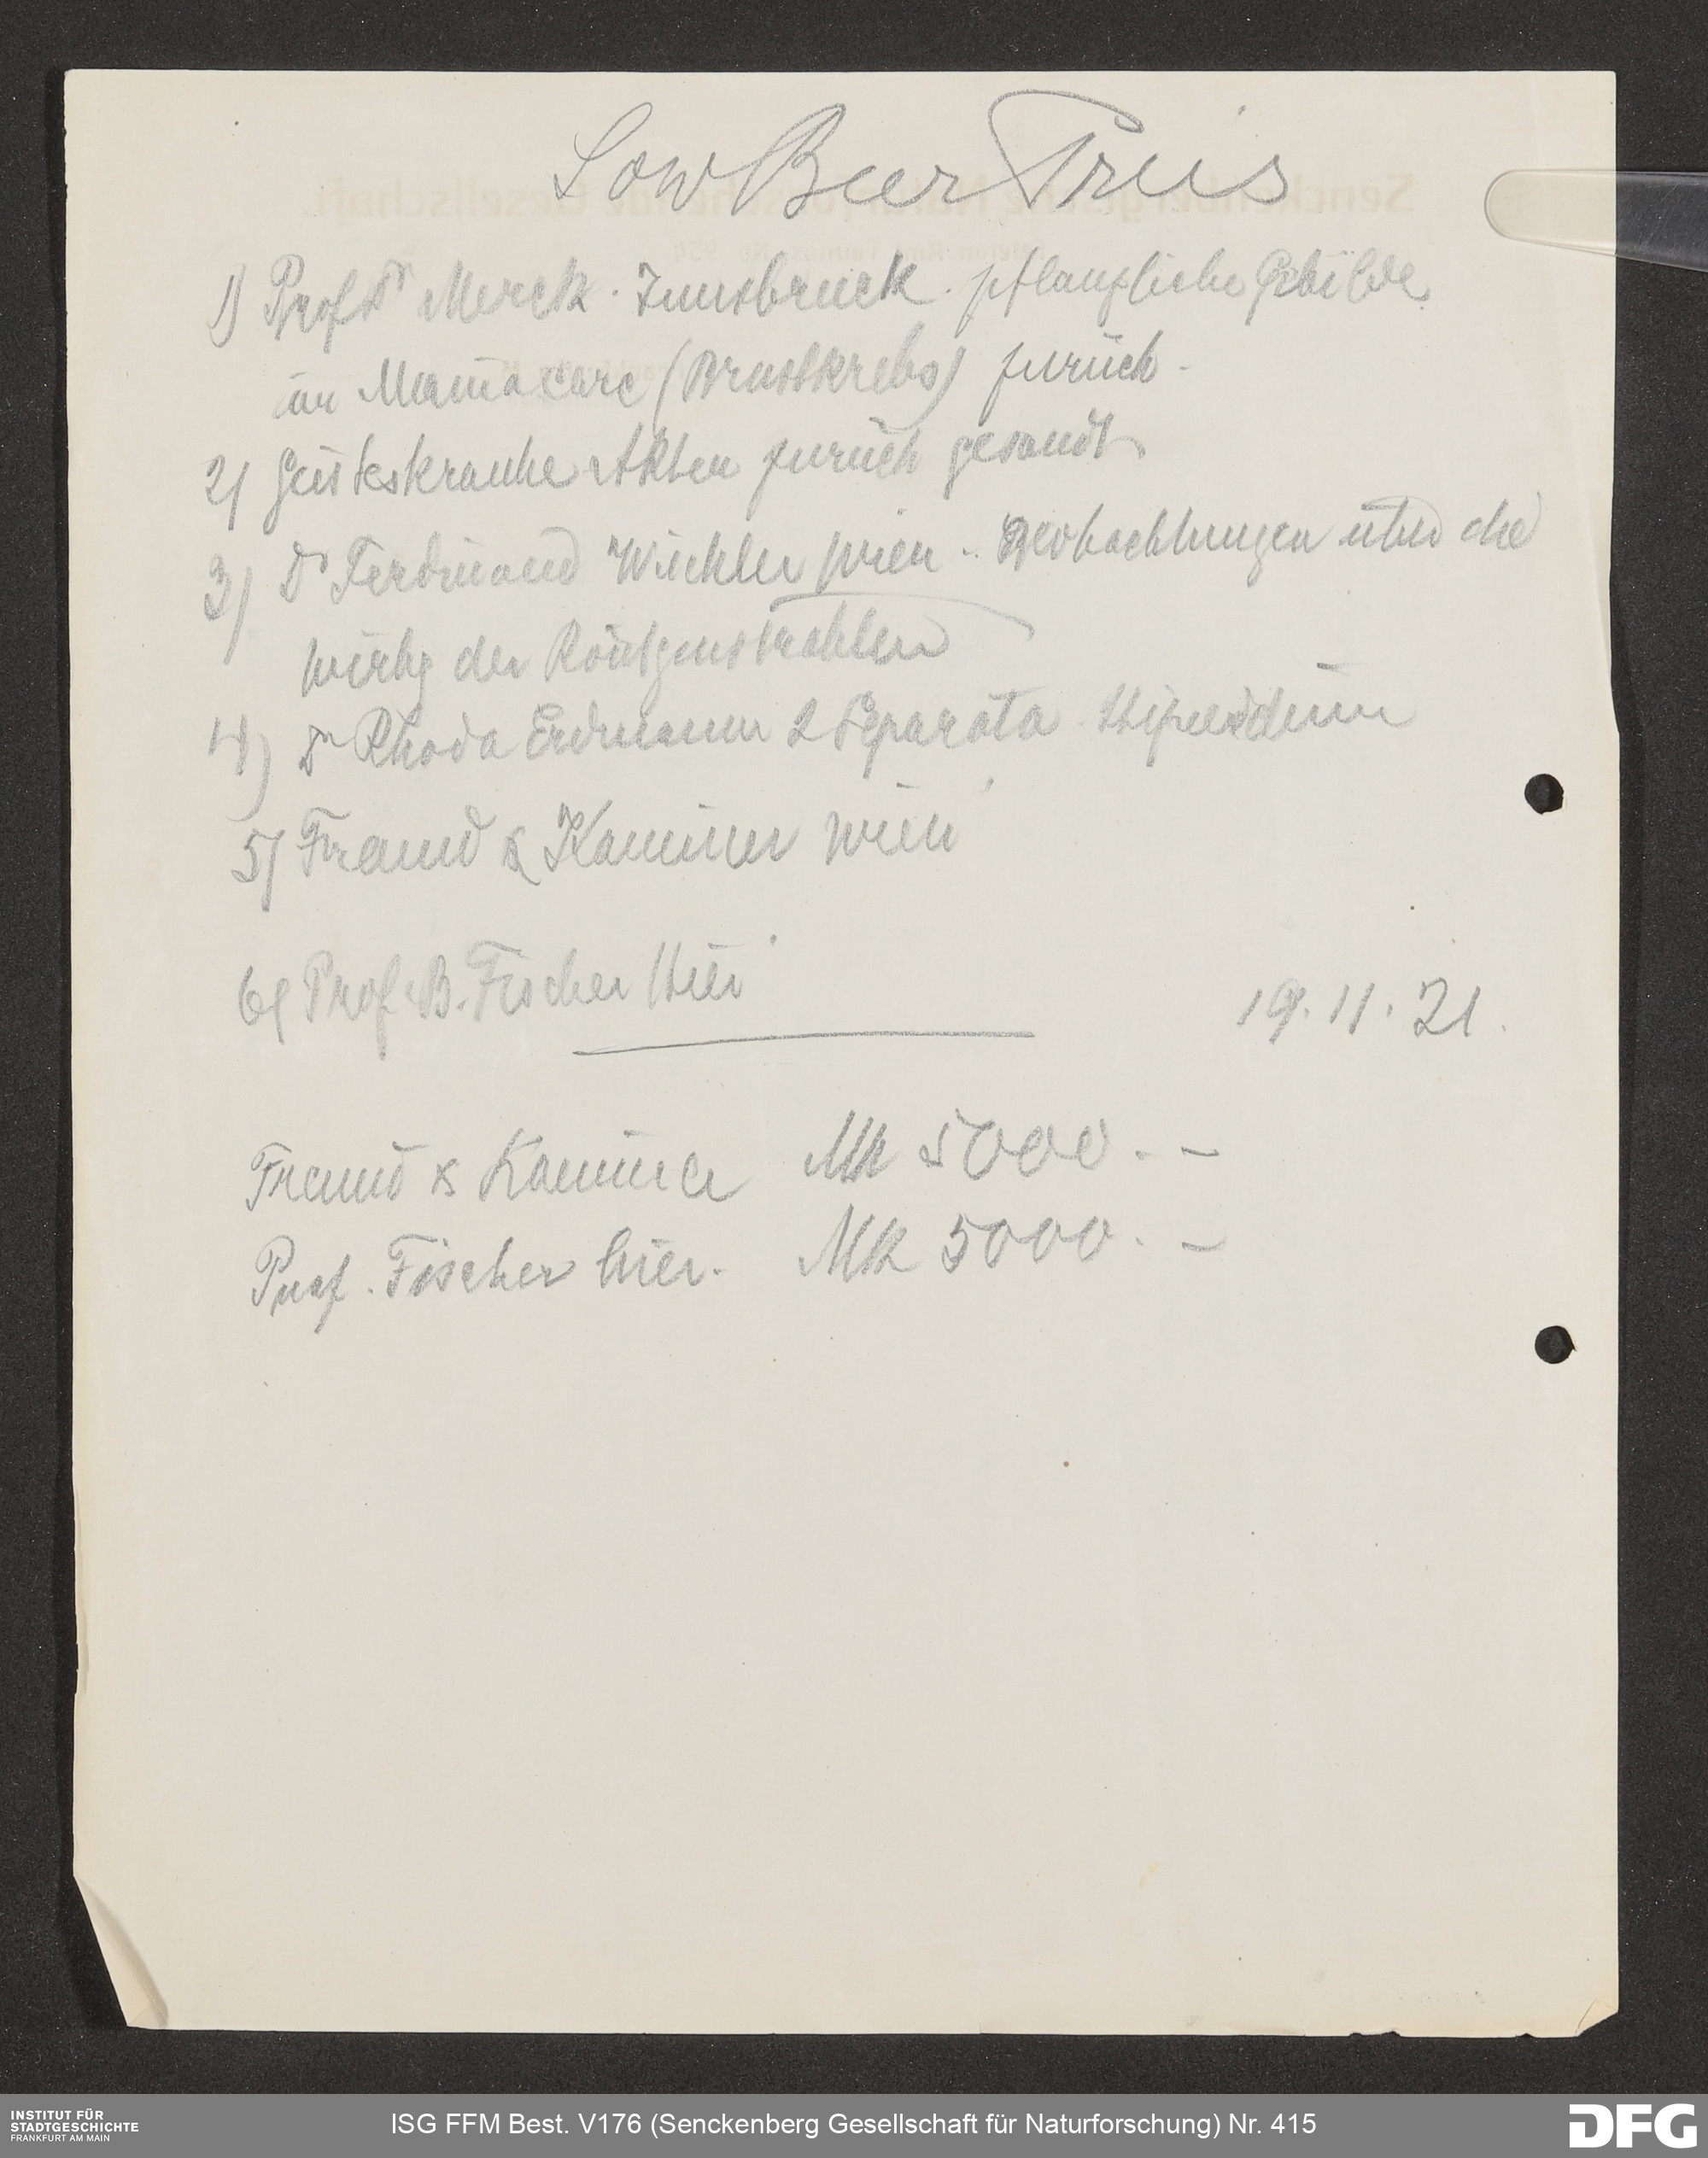 Low Beer Preis
1) Prof Dr Merck. Innsbruck. pflanzliche Gebilde
im Mamacarc (Brustkrebs) zurück.
2) Geisteskranke Akten zurück gesandt
3) Dr Ferdinand Winkler Wien. Beobachtungen über die
Wirkg der Röntgenstrahlen
4) Dr Rhoda Erdmann 2 Separata Stipendium
5) Freund & Kaminer Wien
6) Prof. B. Fischer Hier
19.11.21.
Freund & Kaminer Mk 5000.–
Prof. Fischer hier. Mk 5000.–
INSTITUT FÜR
STADTGESCHICHTE
FRANKFURT AM MAIN
ISG FFM Best. V176 (Senckenberg Gesellschaft für Naturforschung) Nr. 415
DFG